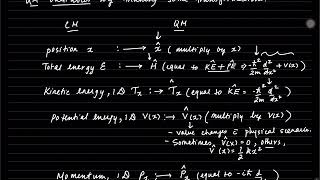 CM QM
position x : → x̂ (multiply by x)
Total energy E : → Ĥ (equal to K̂E + P̂E = -ħ²/2m d²/dx² + V(x))
Kinetic energy, 1D Tx : → T̂x (equal to K̂E = -ħ²/2m d²/dx²)
Potential energy, 1D V(x) : → V̂(x) (multiply by V(x))
- value changes ∈ physical scenario.
- Sometimes, V̂(x) = 0, others,
V̂(x) = 1/2 kx²
Momentum, 1D Px : → P̂x (equal to -iħ d